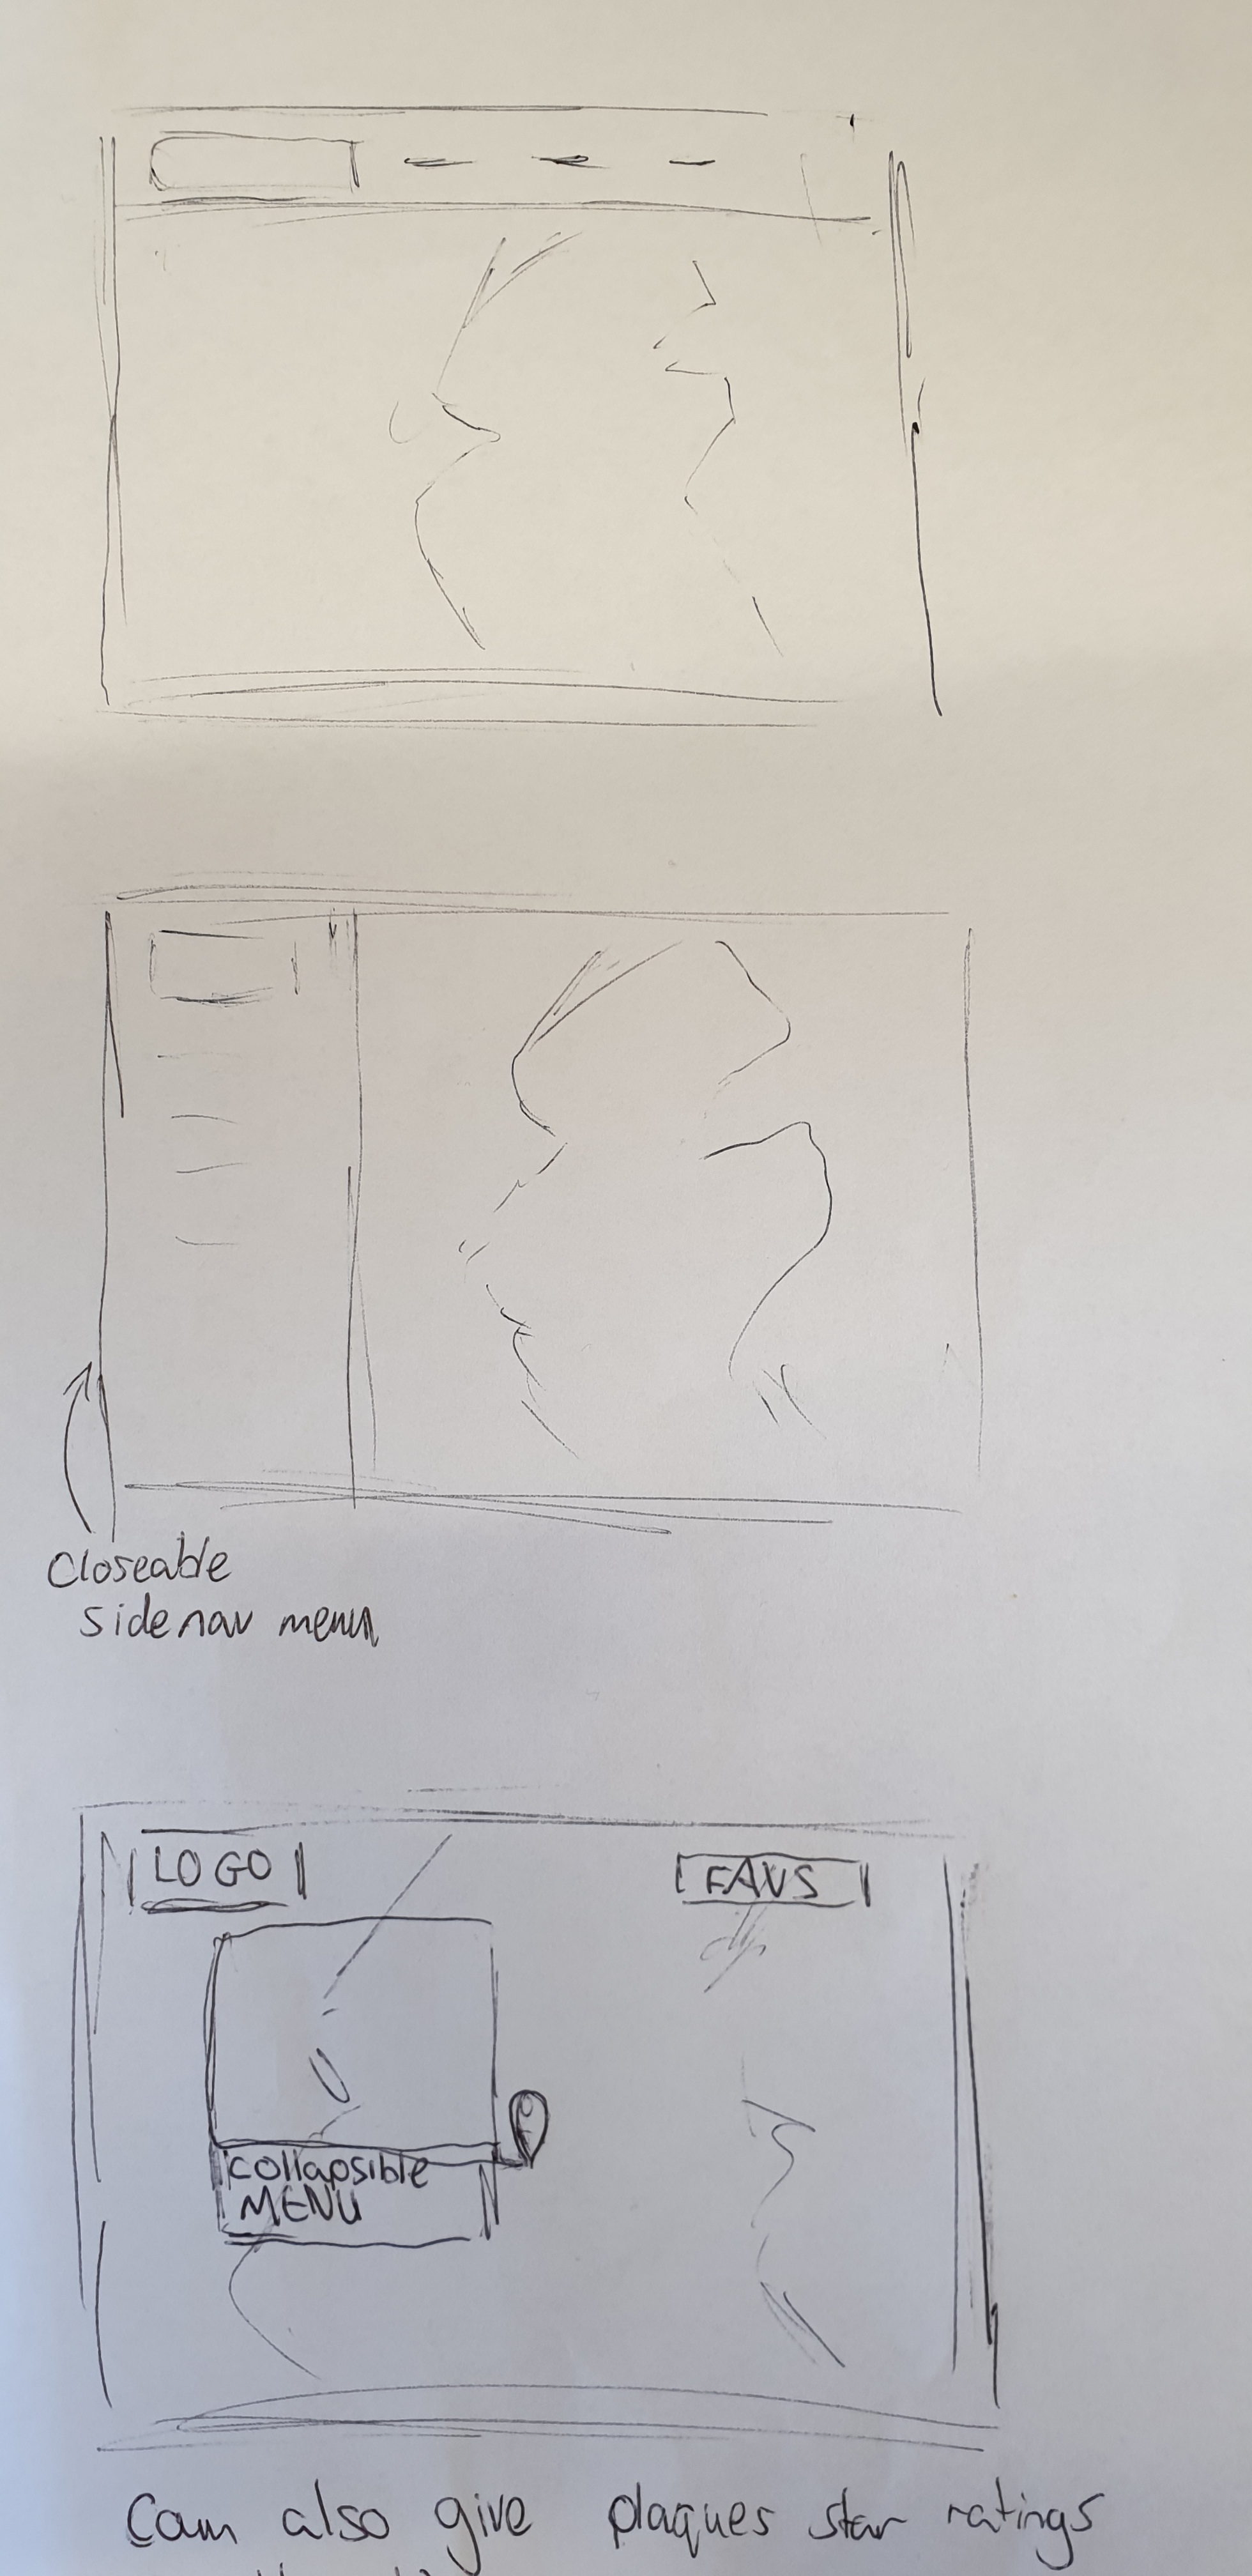 Closeable
sidenav menu
LOGO
FAVS
collapsible
MENU
Can also give plaques star ratings